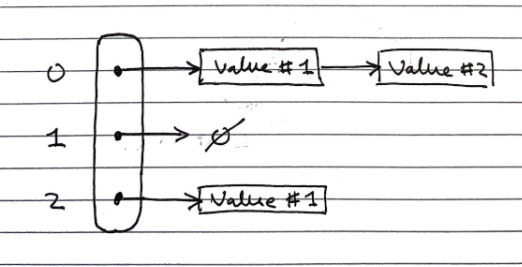 0 Value #1 Value #2
1 ∅
2 Value #1